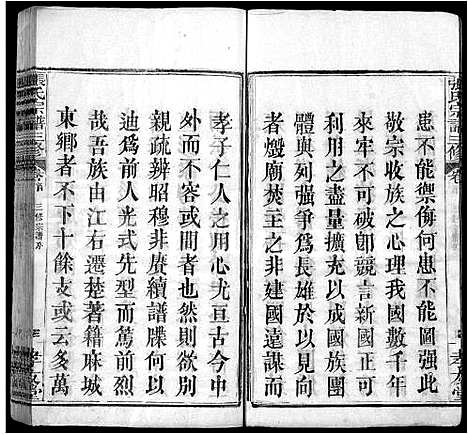 張氏宗譜三修
患不能禦侮何患不能圖強
敬宗收族之心理我國數千年
來牢不可破卽競言新國何可
利用之盡量擴充以成國族團體
與列強爭為長雄於以見向
者燬廟焚主之非建國遠謀而
孝子仁人之用心尤亘古今中
外而不容或間者也然則欲別
親疏辨昭穆非賡續譜牒何以
迪為前人光式先型而萬一
哉吾族由江右遷楚著籍麻城
東鄉者不下十餘支或云多萬
張氏宗譜三修
三修宗譜序
孝友堂